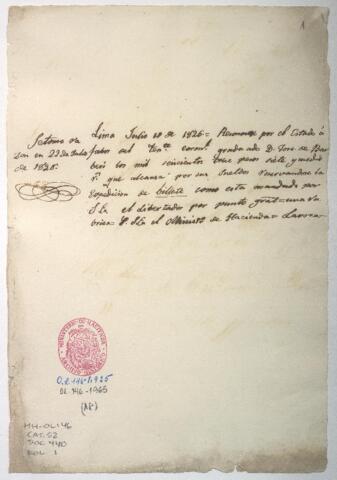 1
Se tomo ra
zon en 22 de Julio
de 1826.
Lima Julio 18 de 1826 = Reconocese por el Estado á
favor del Ten.te Coronel graduado D. Jose de
los mil seiscientos trece pesos siete y medio
r.s que alcanza por sus sueldos reservandose la
Expedicion de billete como esta mandado por
S.E. el Libertador por punto gral = una ru
brica = P. S.E. el Ministro de Hacienda = Larrea
MINISTERIO DE HACIENDA
O.L. 146-1925
OL. 146-1965
MH-OL 146
CAJ. 52
DOC 440
FOL 1